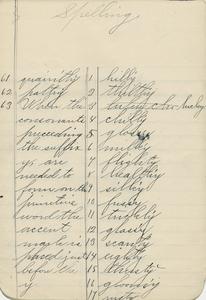 Spelling
61 quaintly
62 pattry
63 When the
consonants
preceeding
the suffix
ys are
needed to
form on the
primitive
word the
accent
mark is
placed just
before the
y
1 hilly
2 thrifty
3
4 chilly
5 glossy
6 milky
7 flighty
8 healthy
9 silky
10 fussy
11
12 glassy
13 scanty
14 eighty
15 thirsty
16 gloomy
17